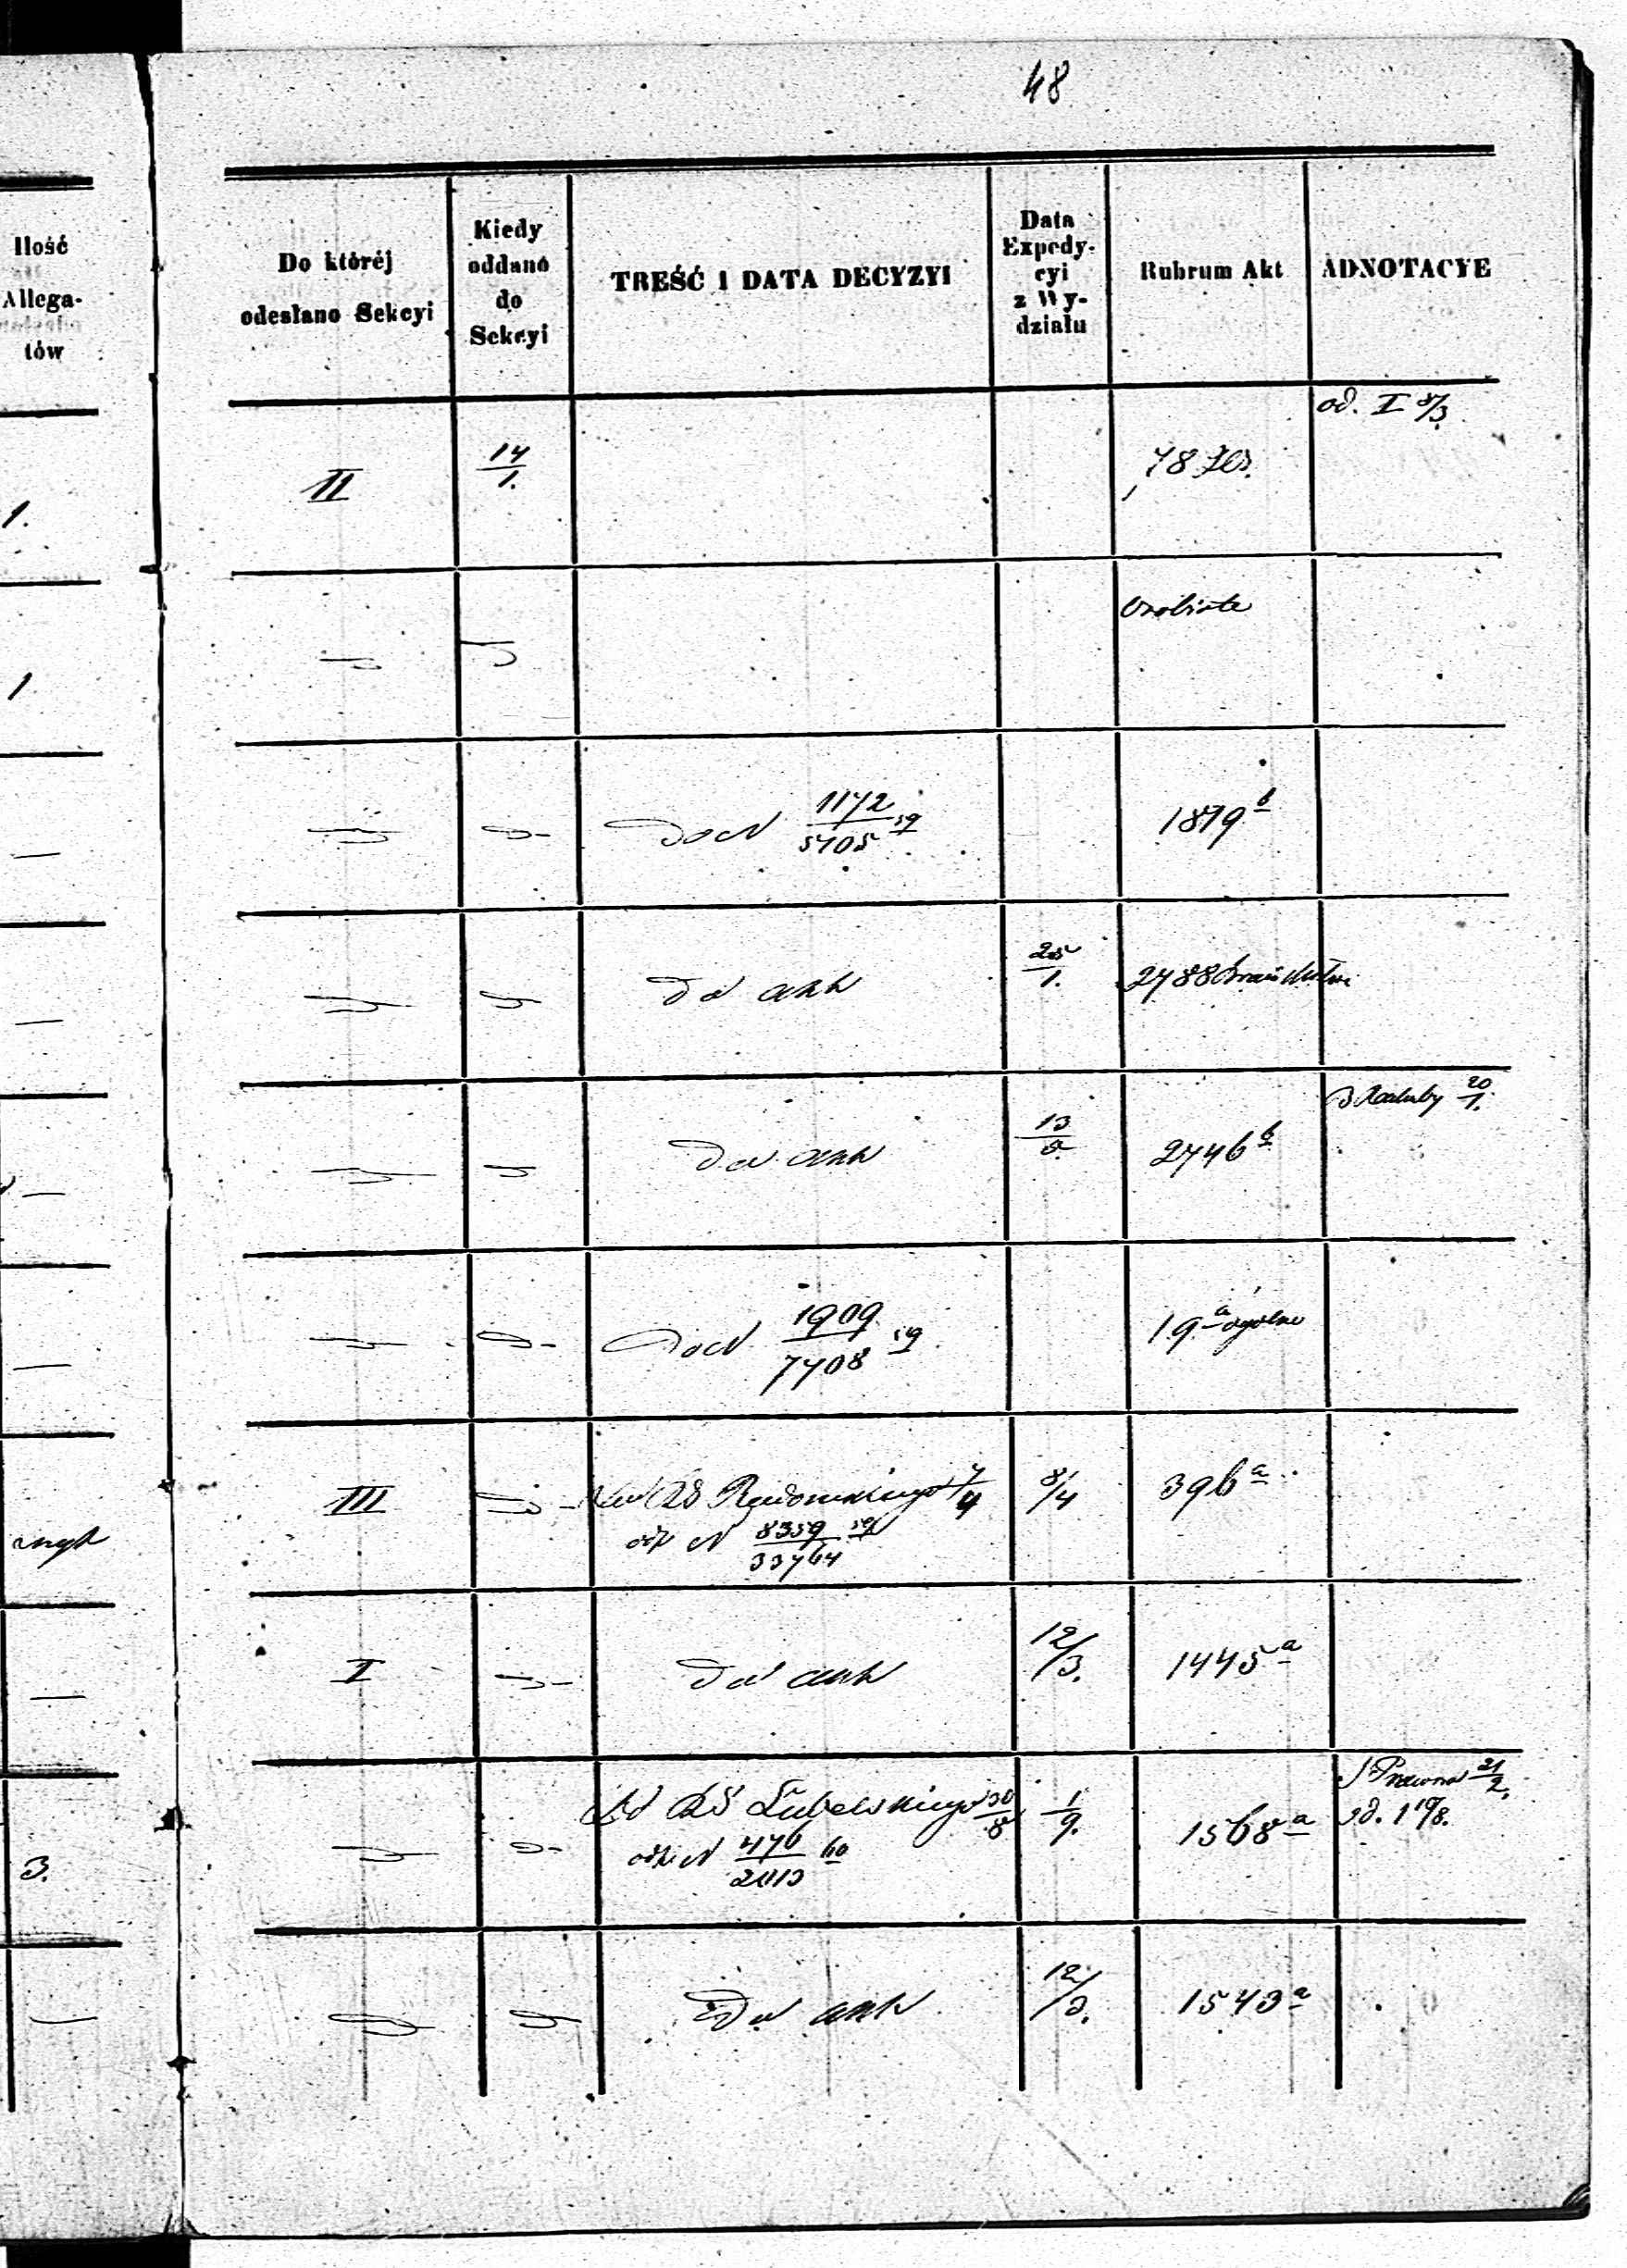 48
Ilość
Allega-
tów
Do któréj
odesłano Sekcyi
Kiedy
oddano
do
Sekcyi
TREŚĆ I DATA DECYZYI
Data
Expedy-
cyi
z Wy-
działu
Rubrum Akt
ADNOTACYE
1.
II
14/1.
78
od. I 8/3
1
Osobiste
—
Do N 1172/5705 59
1879 b
—
Do akt
25/1.
2788
—
Do akt
13/5
2746 b
20/1.
—
Do N 1909/7408 59
19 a ogolne
III
RG Radomskiego 7/4
odp N 8359/33764 59
8/4
396 a
—
I
Do akt
12/3.
1445 a
3.
Do RG Lubelskiego 30/8
odp. N 476/2013 60
1/9.
1568 a
Prawna 21/2.
od. I 19/8.
—
Do akt
12/3.
1543 a